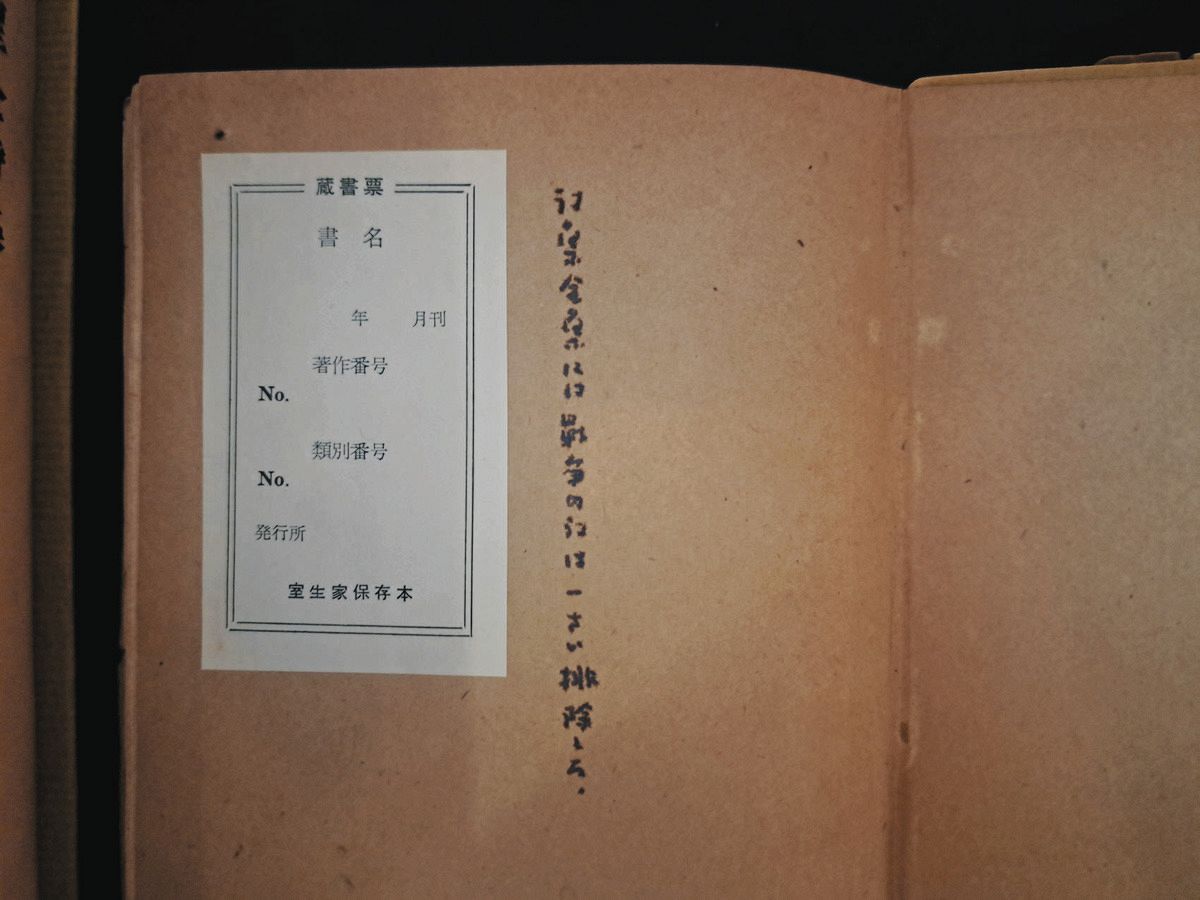 詩集全集には戦争の詩は一さい排除
蔵書票
書 名
年 月刊
著作番号
No.
類別番号
No.
発行所
室生家保存本